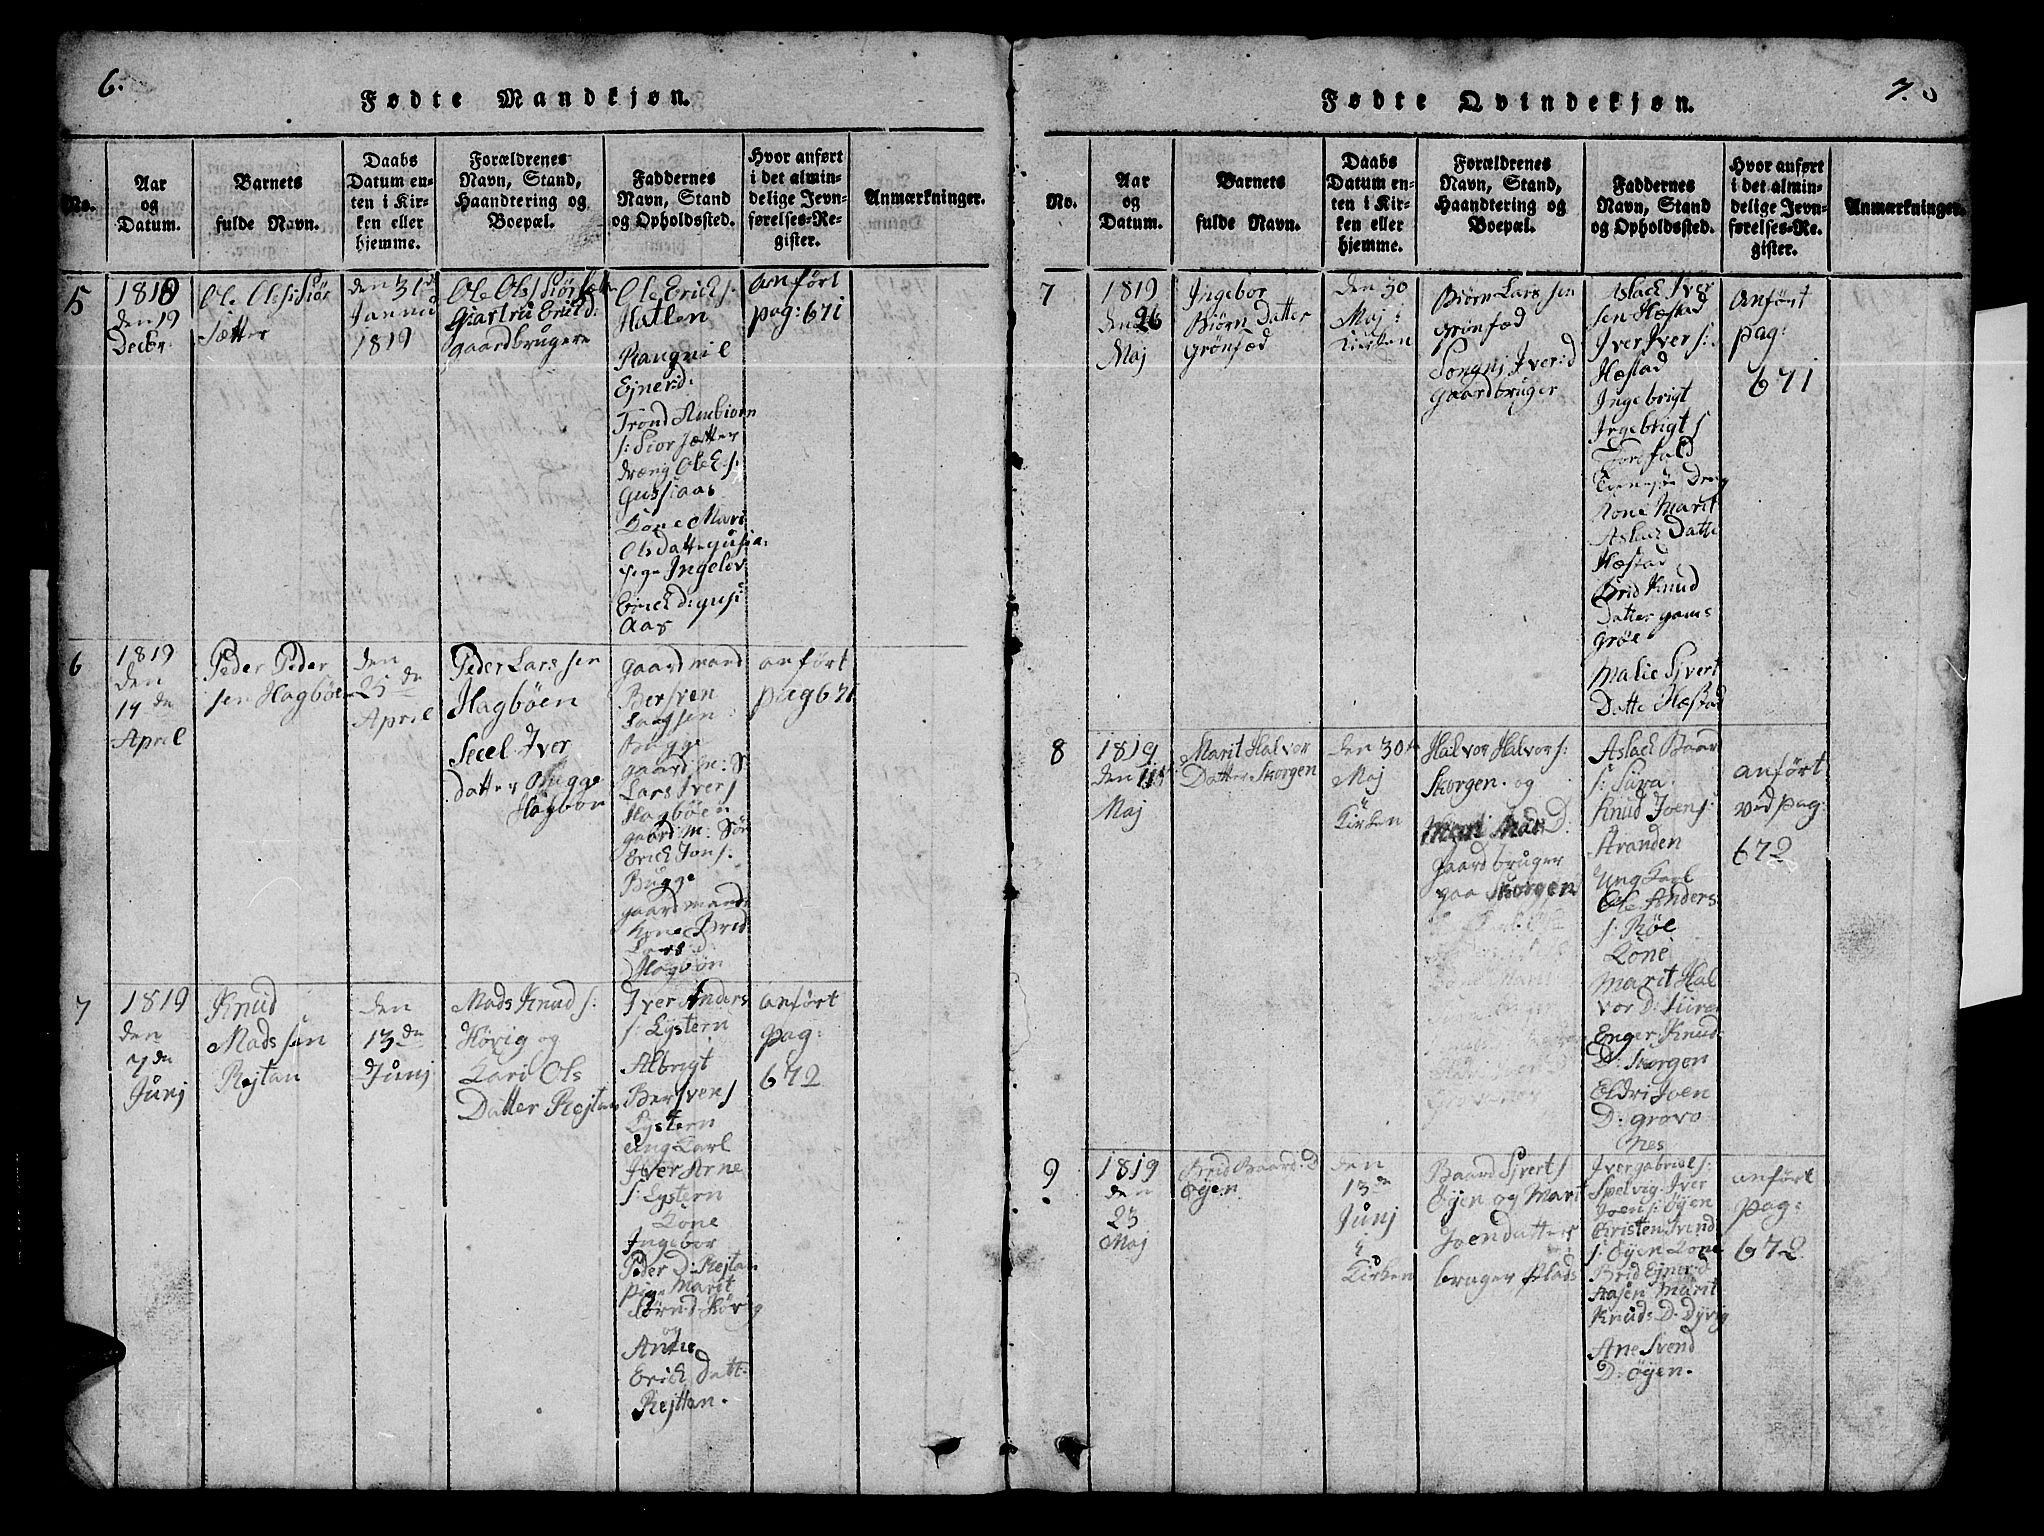 6.
Fødte Mandkjøn.
No.
Aar
og
Datum.
Barnets
fulde Navn.
Daabs
Datum en-
ten i Kir-
ken eller
hjemme.
Forældrenes
Navn, Stand,
Haandtering og
Boepæl.
Faddernes
Navn, Stand
og Opholdssted.
Hvor anført
i det almin-
delige Jevn-
førelses-Re-
gister.
Anmærkninger.
5
1818
den 19
Decbr:
Ole Ols: Siør
Sætter
den 31d
Januari
1819
Ole Ols: Siørsett
Erickd:
gaardbrugere
Ole Erick s:
Hatlen
Rangnil
Ejnerd:
Trond Ambiorn
s: Siorsætter
dræng Ole E. s:
Gussiaas
Kone Mari
Olsdatte gusia:
pige Ingelev
Erick D: gusi
Aas
anført
pag: 671
6
1819
den
14de
April
Peder Peder
sen Hagbøe
den
25de
April
Peder Lars sen
Hagbøen
Secel Iver
datter Bugge
Hagbøn
gaardmand
Bersven
Bugge
gaardm: S
Lars Ivers
Hagbøen
gaardm: Søn
Erick Jons:
Bugge
gaardmands
Kone Brid
Lars d
Hagbøn
anført
pag 671
7
1819
den
7de
Junj
Knud
Mads sen
Rejtan
den
13de
Junj
Mads Knud s:
Hørig og
Kari Ols
Datter Rejtan
Iver Anders
s: Lystern
Albrigt
Bersvens
Lystern
ung Karl
Iver Arne
s: Lystern
Kone
Ingebor
Peder D: Rejtan
pige Marit
og
Erick Datt:
Rejttan.
anført
pag:
672
7.
Fødte Qvindekjøn.
No.
Aar
og
Datum.
Barnets
fulde Navn.
Daabs
Datum en-
ten i Kir-
ken eller
hjemme.
Forældrenes
Navn, Stand,
Haandtering og
Boepæl.
Faddernes
Navn, Stand
og Opholdssted.
Hvor anført
i det almin-
delige Jevn-
førelses-Re-
gister.
Anmærkninger.
7
1819
den 26
Maj
Ingebor
Biørn Datter
Grønfæd
den 30
Maj i
Kirken
Biørn Lars sen
Grønfæd
Songnj Iver:d
gaardbruger
Aslack Iver
sen Hæstad
Iver Iver s:
Hæstad
Ingebrigt
Ingebrigt s
Kone Marit
Aslac Datte
Hæstad
Brid Knud
Datter gams
grøe
Malie Sivert
Datte Hæstad
anført
pag:
671
8
1819
den 115
Maj
Marit Halvor
Datter Skorgen
den 30te
Maj
Kirken
Halvor Halvor s:
Skorgen. og
Mari Mad: D:
gaardbruger
paa Skorgen
Aslack Baar
s: Sura
Knud Joen s:
Stranden
Ung Karl
Ole Anders
s: Røe
Kone
Marit Hal
vor D: Sura
Enger Knud
D: Skorgen
Eldri Joen
D: grovo
nes
anført
ved pag:
672
9
1819
den
23
Maj
Brid Baard: D
Øyen
den
13de
Junj
i
Kirken
Baard Sivert s
Øyen og Mari
Joendatter
bruger Plads
Iver gabriel s:
Spelvig. Iver
Joen s: Øyen
Cristen Svend
s: Øyen Kone
Brid Ejner:d
Aasen Marit
Knud: D. Dyvig
Ane Svend
D: Øyen.
anført
pag:
672